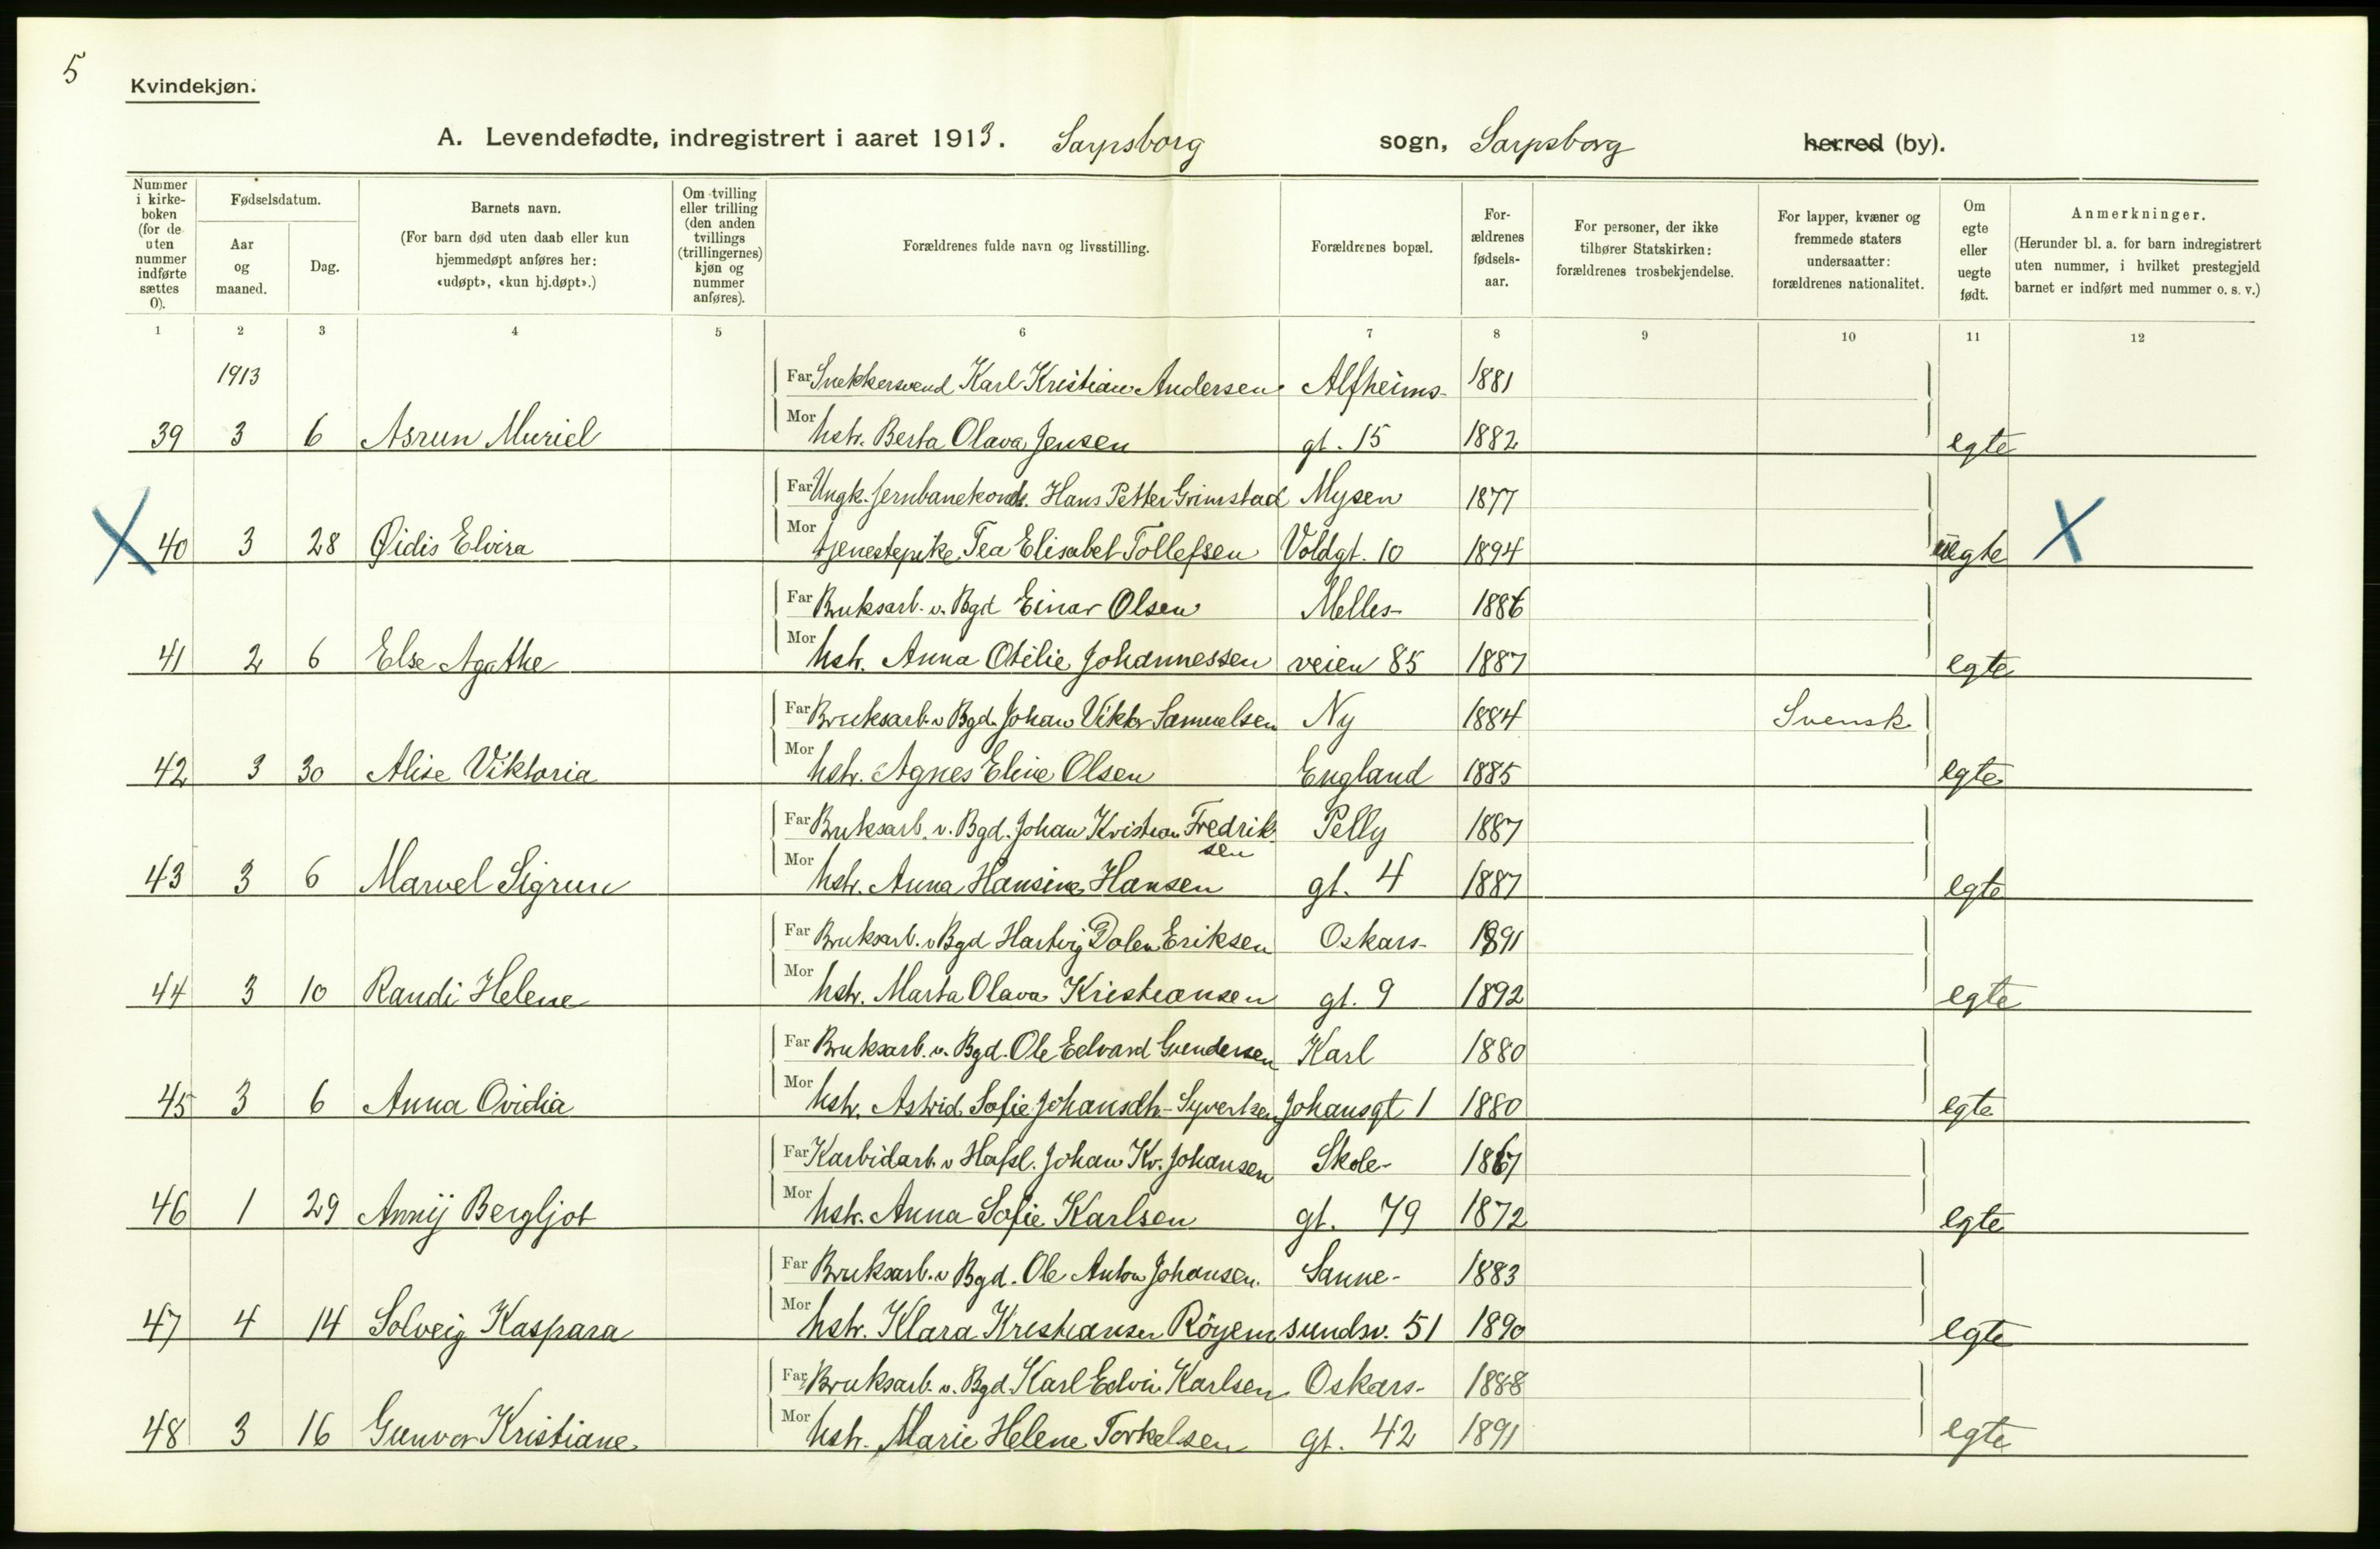 5
Kvindekjøn.
A. Levendefødte, indregistrert i aaret 1913. Sarpsborg sogn, Sarpsborg herred (by).
Nummer i kirkeboken (for de uten nummer indførte sættes 0).
Fødselsdatum.
Aar og maaned.
Dag.
Barnets navn.
(For barn død uten daab eller kun hjemmedøpt anføres her: «udøpt», «kun hj.døpt».)
Om tvilling eller trilling (den anden tvillings (trillingernes) kjøn og nummer anføres).
Forældrenes fulde navn og livsstilling.
Forældrenes bopæl.
For-ældrenes fødsels-aar.
For personer, der ikke tilhører Statskirken: forældrenes trosbekjendelse.
For lapper, kvæner og fremmede staters undersaatter: forældrenes nationalitet.
Om egte eller uegte født.
Anmerkninger.
(Herunder bl. a. for barn indregistrert uten nummer, i hvilket prestegjeld barnet er indført med nummer o. s. v.)
1 2 3 4 5 6 7 8 9 10 11 12
1913 Far Snekkersvend Karl Kristian Andersen Alfheims- 1881
39 3 6 Asrun Muriel Mor hstr. Berta Olava Jensen gt. 15 1882 egte
Far Ungk. jernbanekond. Hans Petter Grimstad Mysen 1877
X 40 3 28 Øidis Elvira Mor tjenestepike Tea Elisabet Tollefsen Voldgt. 10 1894 uegte X
Far Bruksarb. v. Bgd Einar Olsen Melles- 1886
41 2 6 Else Agathe Mor hstr. Anna Otilie Johannessen veien 85 1887 egte
Far Bruksarb. v Bgd. Johan Viktor Samuelsen Ny 1884 Svensk
42 3 30 Alise Viktoria Mor hstr. Agnes Eline Olsen England 1885 egte
Far Bruksarb. v. Bgd. Johan Kristian Fredrik- Pelly 1887
sen
43 3 6 Marvel Sigrun Mor hstr. Anna Hansine Hansen gt. 4 1887 egte
Far Bruksarb. v Bgd Hartvig Dolen Eriksen Oskars- 1891
44 3 10 Randi Helene Mor hstr. Marta Olava Kristiansen gt. 9 1892 egte
Far Bruksarb. v. Bgd. Ole Edvard Gundersen Karl 1880
45 3 6 Anna Ovidia Mor hstr. Astrid Sofie Johansdtr. Syvertsen Johansgt 1 1880 egte
Far Karbidarb. v Hafsl. Johan Kr. Johansen Skole- 1867
46 1 29 Annij Bergljot Mor hstr. Anna Sofie Karlsen gt. 79 1872 egte
Far Bruksarb. v Bgd. Ole Anton Johansen. Sanne- 1883
47 4 14 Solveig Kaspara Mor hstr. Klara Kristiansen Röyem sundsv. 51 1890 egte
Far Bruksarb. v. Bgd. Karl Edvin Karlsen Oskars- 1888
48 3 16 Gunvor Kristiane Mor hstr. Marie Helene Torkelsen gt. 42 1891 egte